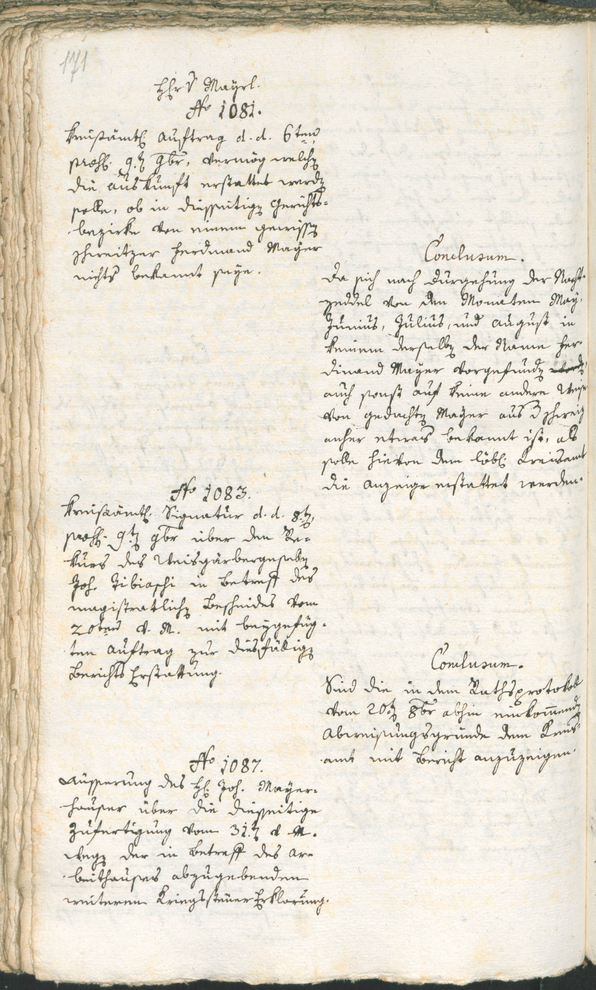 171
H: Mayrl.
No 1081.
Kreisämtl. Auftrag d. d. 6ten
praes. 9t 9br, vermög welch
die Auskunft erstattet werd
solle, ob in diesseitig Gerichts-
bezirke von einem gewiss
Ferdinand Mayer
nichts bekannt seye.
Conclusum.
Da sich nach Durgehung der Nacht-
zeddel von den Monaten May,
Junius, Julius, und August in
keinem derselb der Name Fer
dinand Mayer vorgefund
auch sonst auf keine andere Weise
von gedacht Mayer aus
anher etwas bekannt ist, als
solle hievon dem löbl. Kreisamt
die Anzeige erstattet werden.
No 1083.
Kreisämtl. Signatur d. d. 8t
praes. 9t 9br über den Re-
kurs des Weisgärbergesell
Joh. Zibiaschi in Betreff des
magistratlich Bescheides vom
20ten v. M. mit beygefüg-
ten Auftrag zur diesfällig
Berichts Erstattung.
Conclusum.
Sind die in dem Rathsprotokoll
vom 20t 8br abhin einkommend
Abweisungsgründe dem Kreis-
amt mit Bericht anzuzeigen.
No 1087.
Äusserung des H: Joh. Mayer-
hauser über die diesseitige
Zufertigung vom 31t v. M.
weg der in Betreff des Ar-
beithauses abzugebenden
weiteren Kriegssteuer Erklärung.